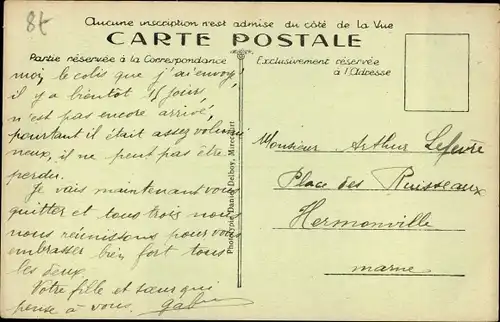 8t
Aucune inscription n'est admise du côté de la Vue
CARTE POSTALE
Partie réservée à la Correspondance
Exclusivement réservée
à l'Adresse
moi, le colis que j'ai envoyé
il y a bientôt 15 jours,
n'est pas encore arrivé,
pourtant il était assez volumi
neux, il ne peut pas être
perdu.
Je vais maintenant vous
quitter et tous trois nous
nous réunissons pour vous
embrasser bien fort tous
les deux.
Votre fille et sœur qui
pense à vous.
Phototypie Daniel Delboy, Mirecourt
Monsieur Arthur Lefevre
Place des Ruisseaux
Hermonville
marne